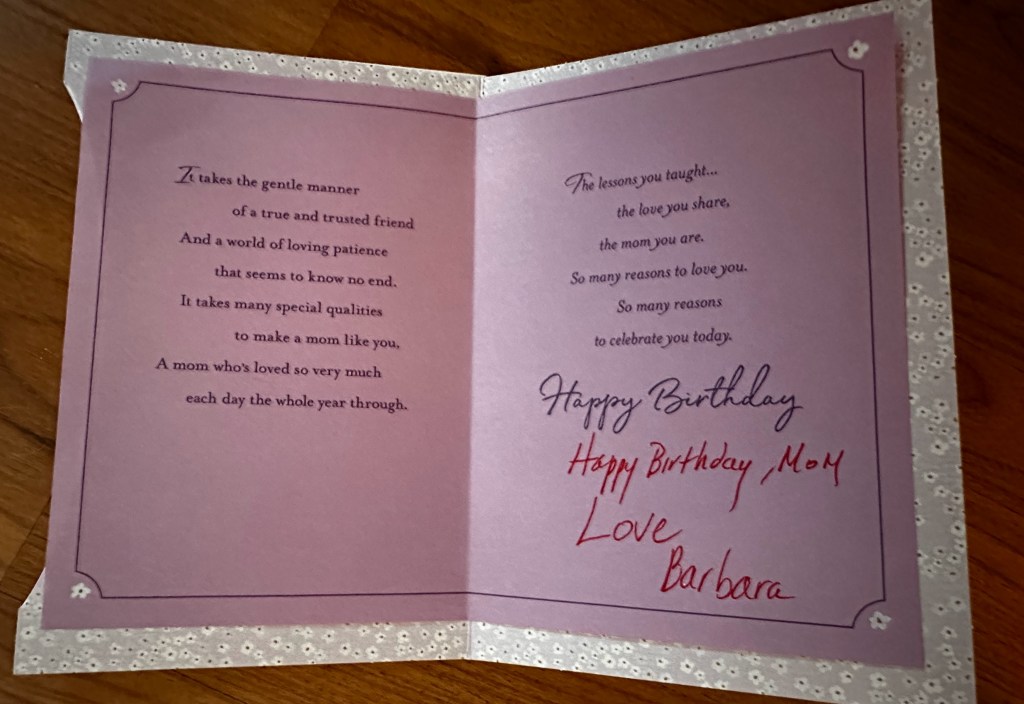 It takes the gentle manner
of a true and trusted friend
And a world of loving patience
that seems to know no end.
It takes many special qualities
to make a mom like you,
A mom who's loved so very much
each day the whole year through.
The lessons you taught...
the love you share,
the mom you are.
So many reasons to love you.
So many reasons
to celebrate you today.
Happy Birthday
Happy Birthday, Mom
Love
Barbara